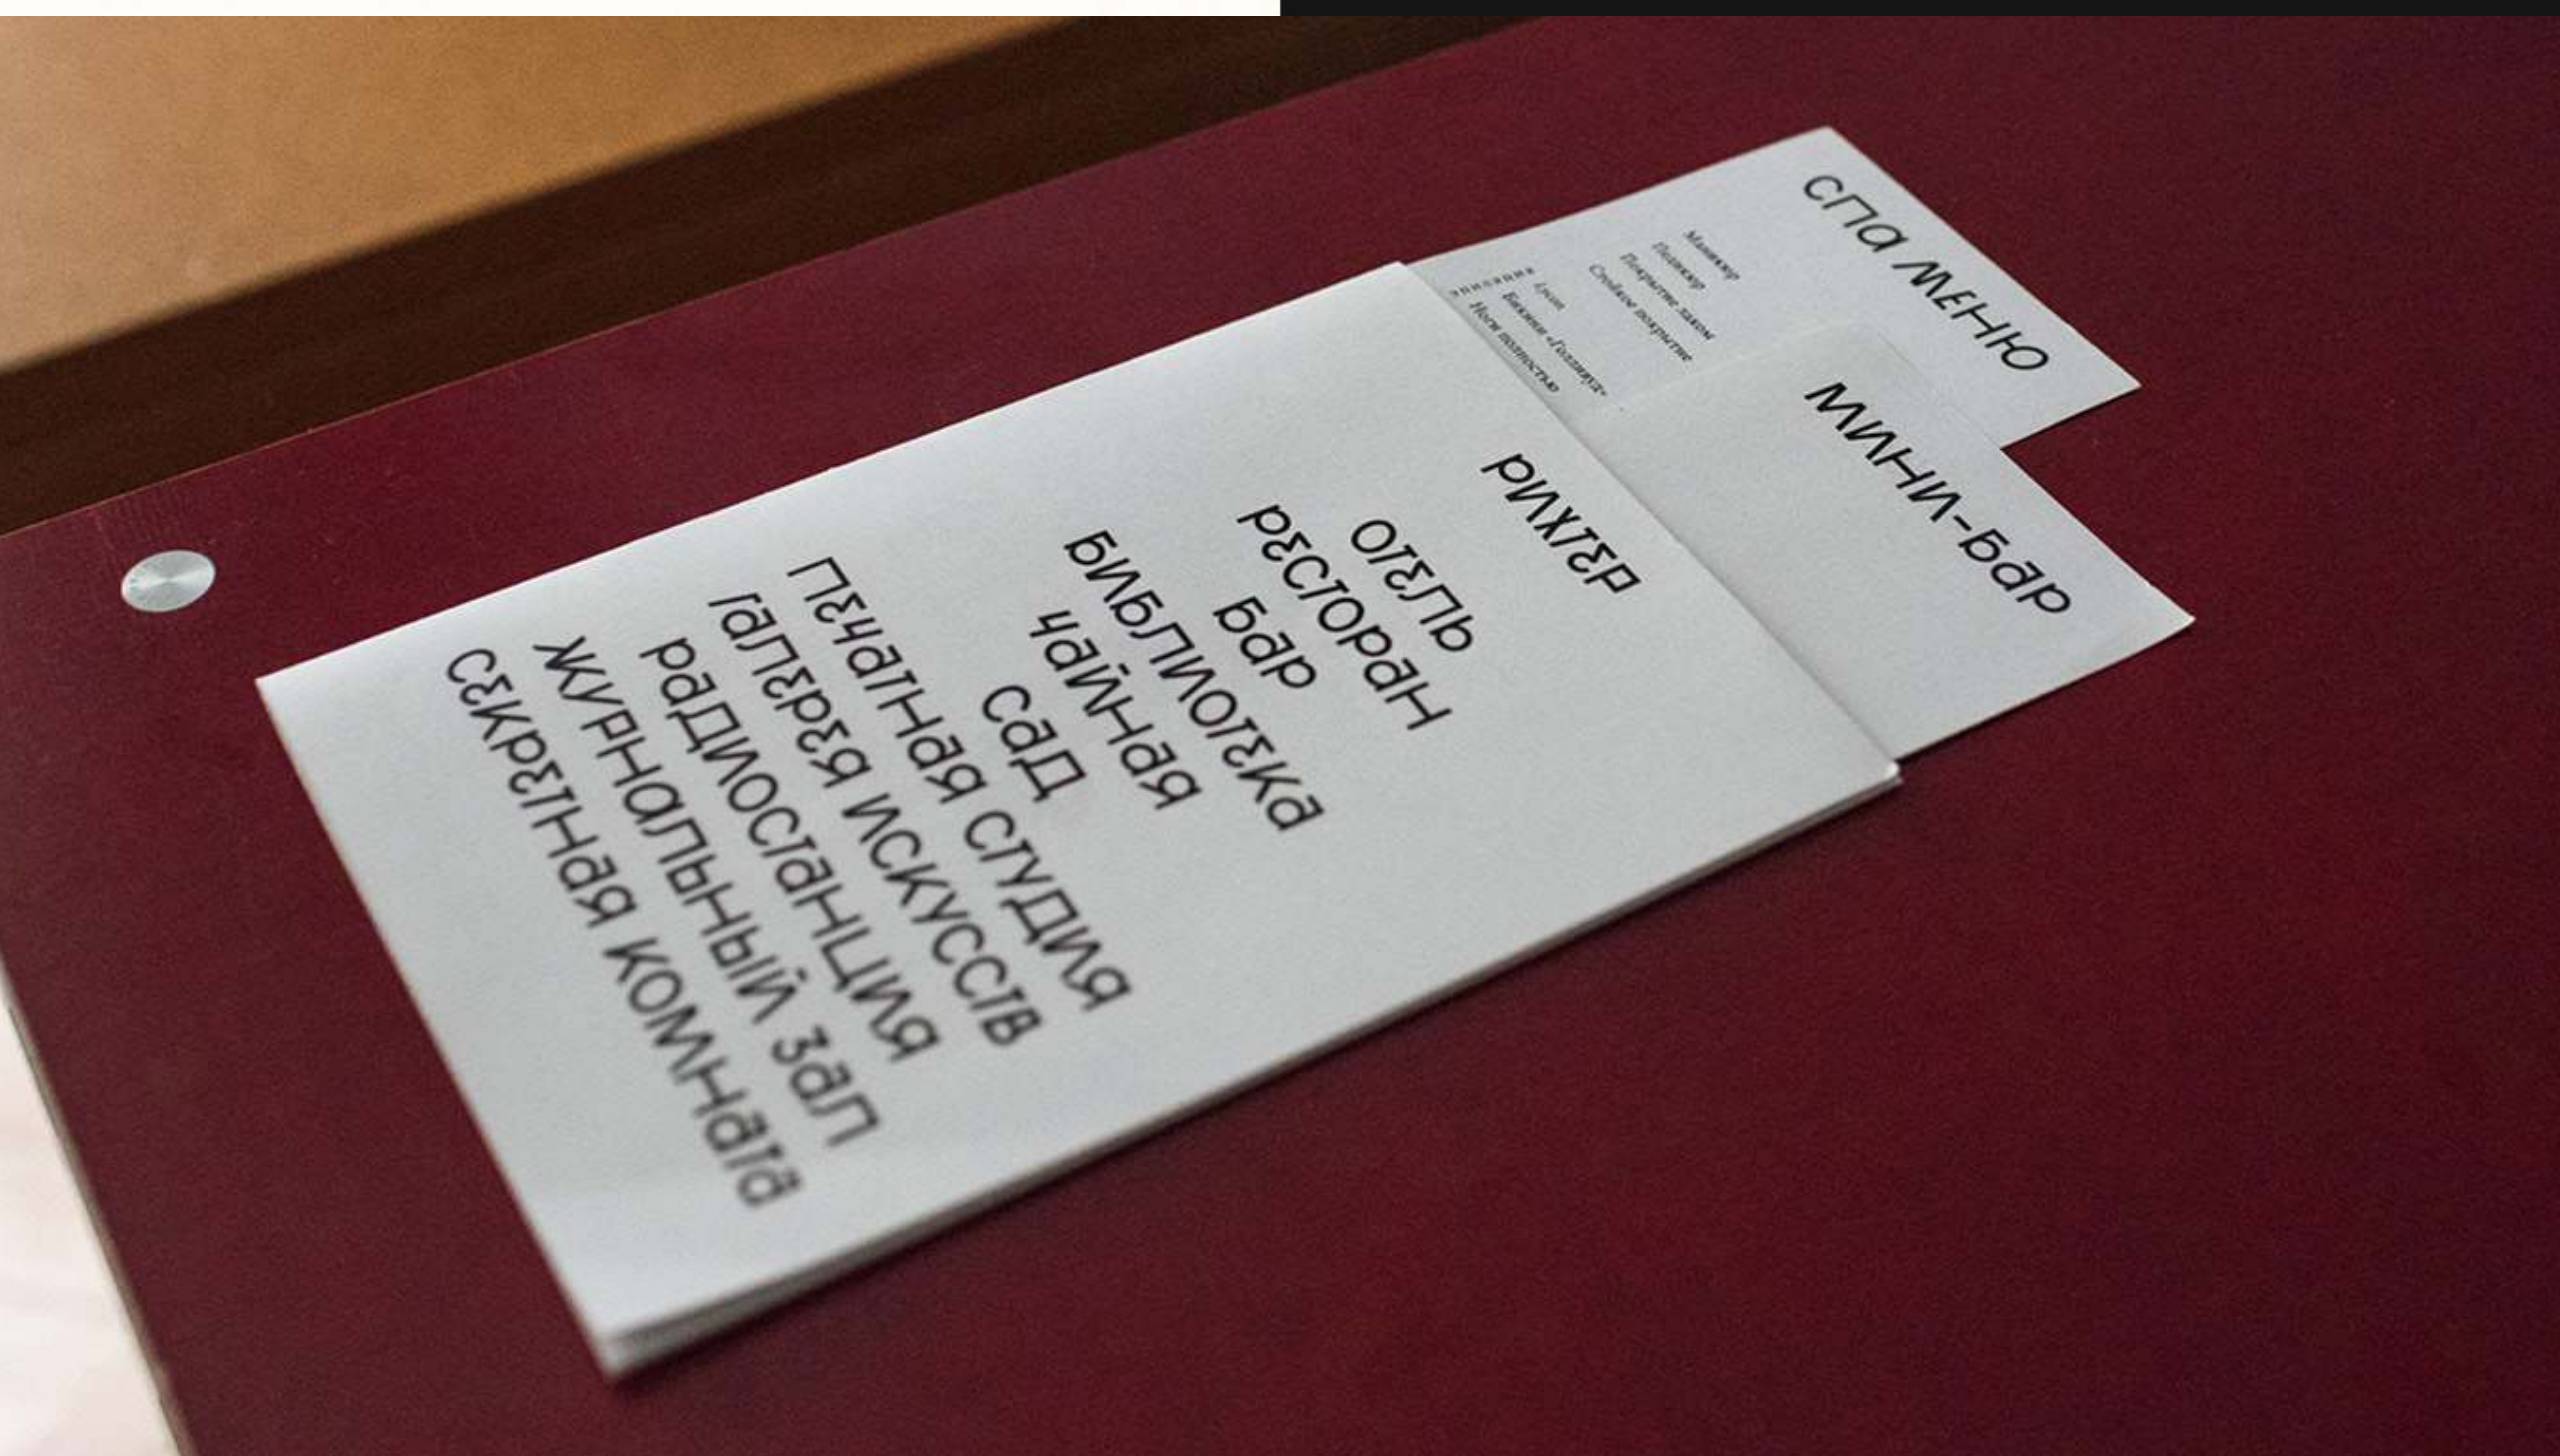 СПА МЕНЮ
Маникюр
Педикюр
Покрытие лаком
Стойкое покрытие
Бикини «Голливуд»
Ноги полностью
МИНИ-БАР
РИХТЕР
ОТЕЛЬ
РЕСТОРАН
БАР
БИБЛИОТЕКА
ЧАЙНАЯ
САД
ПЕЧАТНАЯ СТУДИЯ
ГАЛЕРЕЯ ИСКУССТВ
РАДИОСТАНЦИЯ
ЖУРНАЛЬНЫЙ ЗАЛ
СЕКРЕТНАЯ КОМНАТА